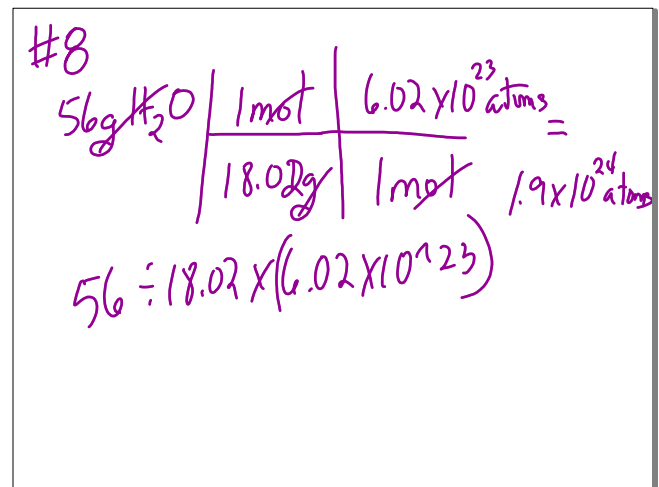 #8
56g H₂O | 1 mol | 6.02 x10²³ atoms =
18.02g | 1 mol 1.9x10²⁴ atoms
56 ÷ 18.02 x (6.02 x10^23)